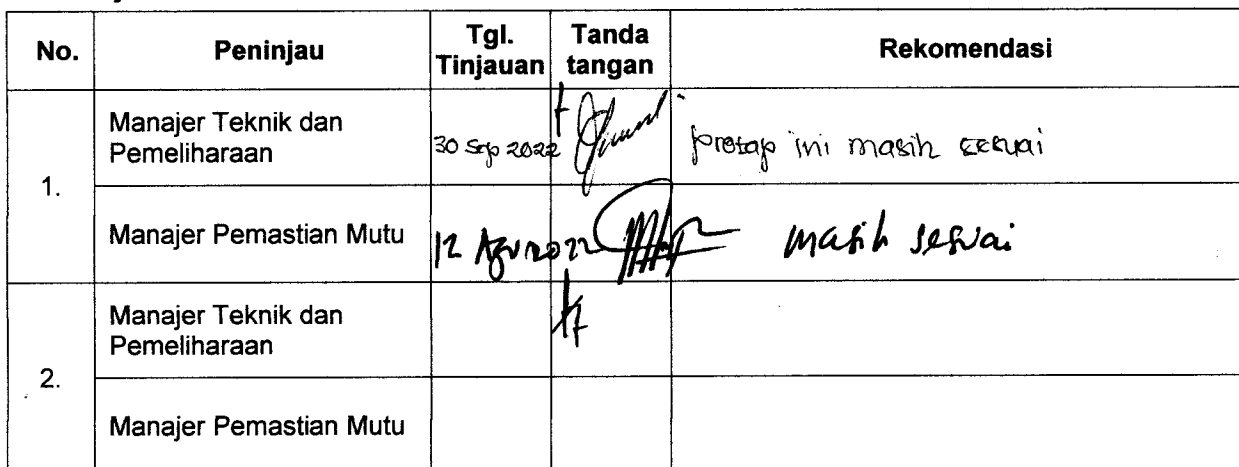 No. Peninjau Tgl. Tinjauan Tanda tangan Rekomendasi
1.
Manajer Teknik dan
Pemeliharaan
30 Sep 2022
protap ini masih sesuai
Manajer Pemastian Mutu
12 Agu 2022
masih sesuai
2.
Manajer Teknik dan
Pemeliharaan
Manajer Pemastian Mutu